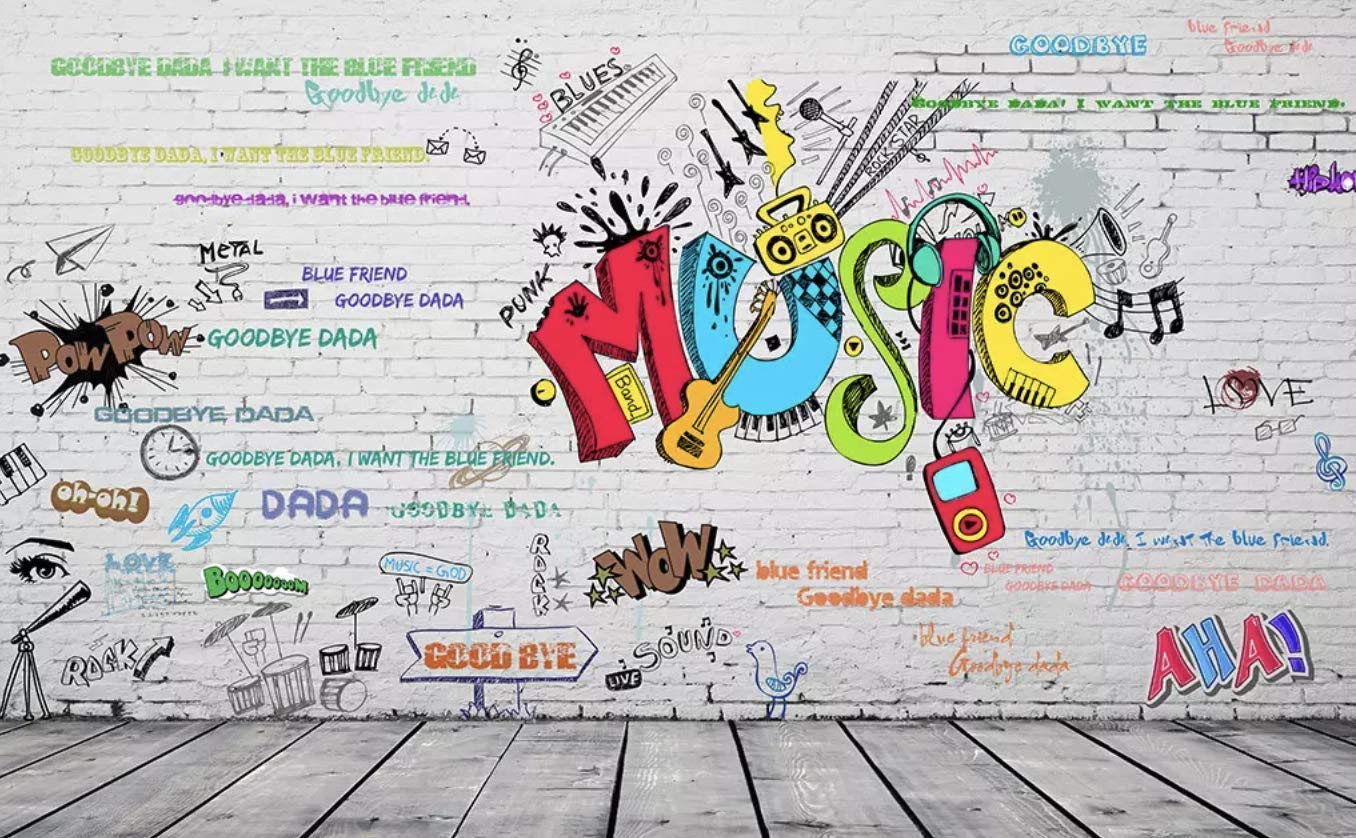 GOODBYE
blue friend
Goodbye dada
GOODBYE DADA I WANT THE BLUE FRIEND
Goodbye dada
BLUES
GOODBYE DADA! I WANT THE BLUE FRIEND.
ROCK STAR
GOODBYE DADA, I WANT THE BLUE FRIEND.
goodbye dada, i want the blue friend.
METAL
BLUE FRIEND
GOODBYE DADA
PUNK
MUSIC
Band
POW POW
GOODBYE DADA
LOVE
GOODBYE DADA
GOODBYE DADA, I WANT THE BLUE FRIEND.
oh-oh!
DADA
GOODBYE DADA
Goodbye dada, I want the blue friend.
LOVE
BOOOOOOOM
MUSIC = GOD
ROCK
WOW
blue friend
Goodbye dada
BLUE FRIEND
GOODBYE DADA
GOODBYE DADA
ROCK
GOOD BYE
SOUND
LIVE
blue friend
Goodbye dada
AHA!